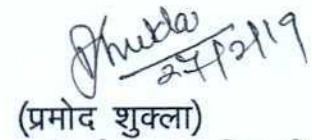 Shukla
27/2/19
(प्रमोद शुक्ला)